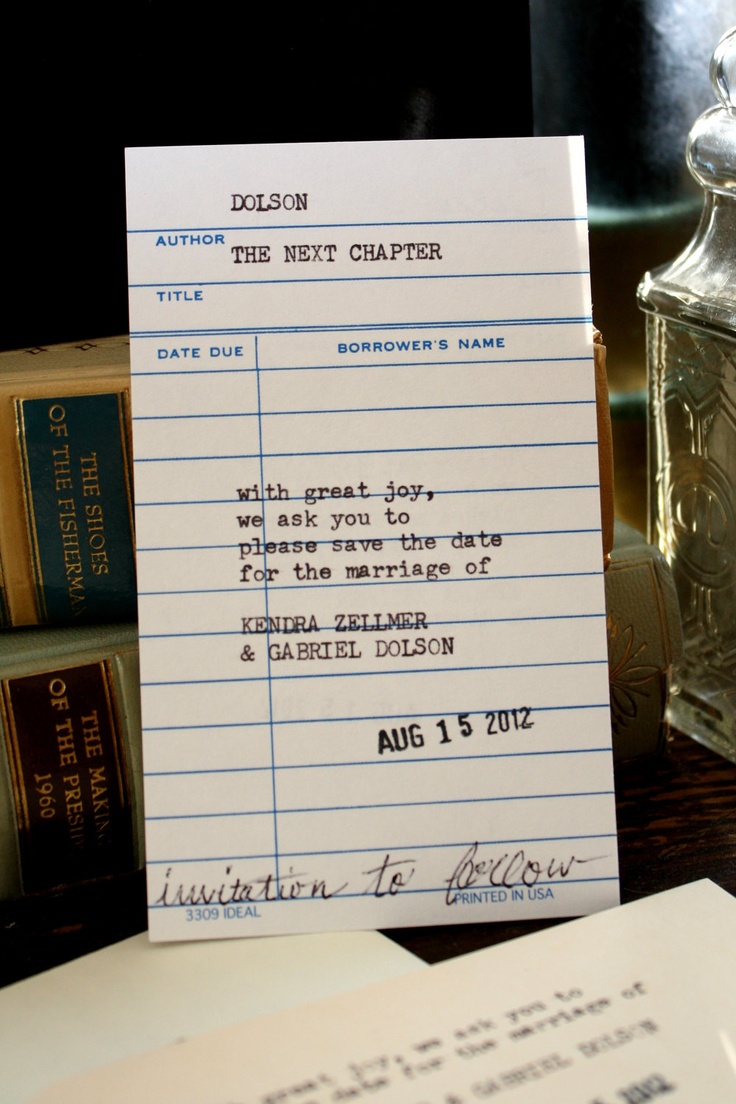 DOLSON
AUTHOR
THE NEXT CHAPTER
TITLE
DATE DUE
BORROWER'S NAME
with great joy,
we ask you to
please save the date
for the marriage of
KENDRA ZELLMER
& GABRIEL DOLSON
AUG 15 2012
invitation to follow
3309 IDEAL
PRINTED IN USA
THE SHOES
OF THE FISHERMAN
THE MAKING
OF THE
1960
great joy, we ask you to
date for the marriage of
& GABRIEL DOLSON
2012